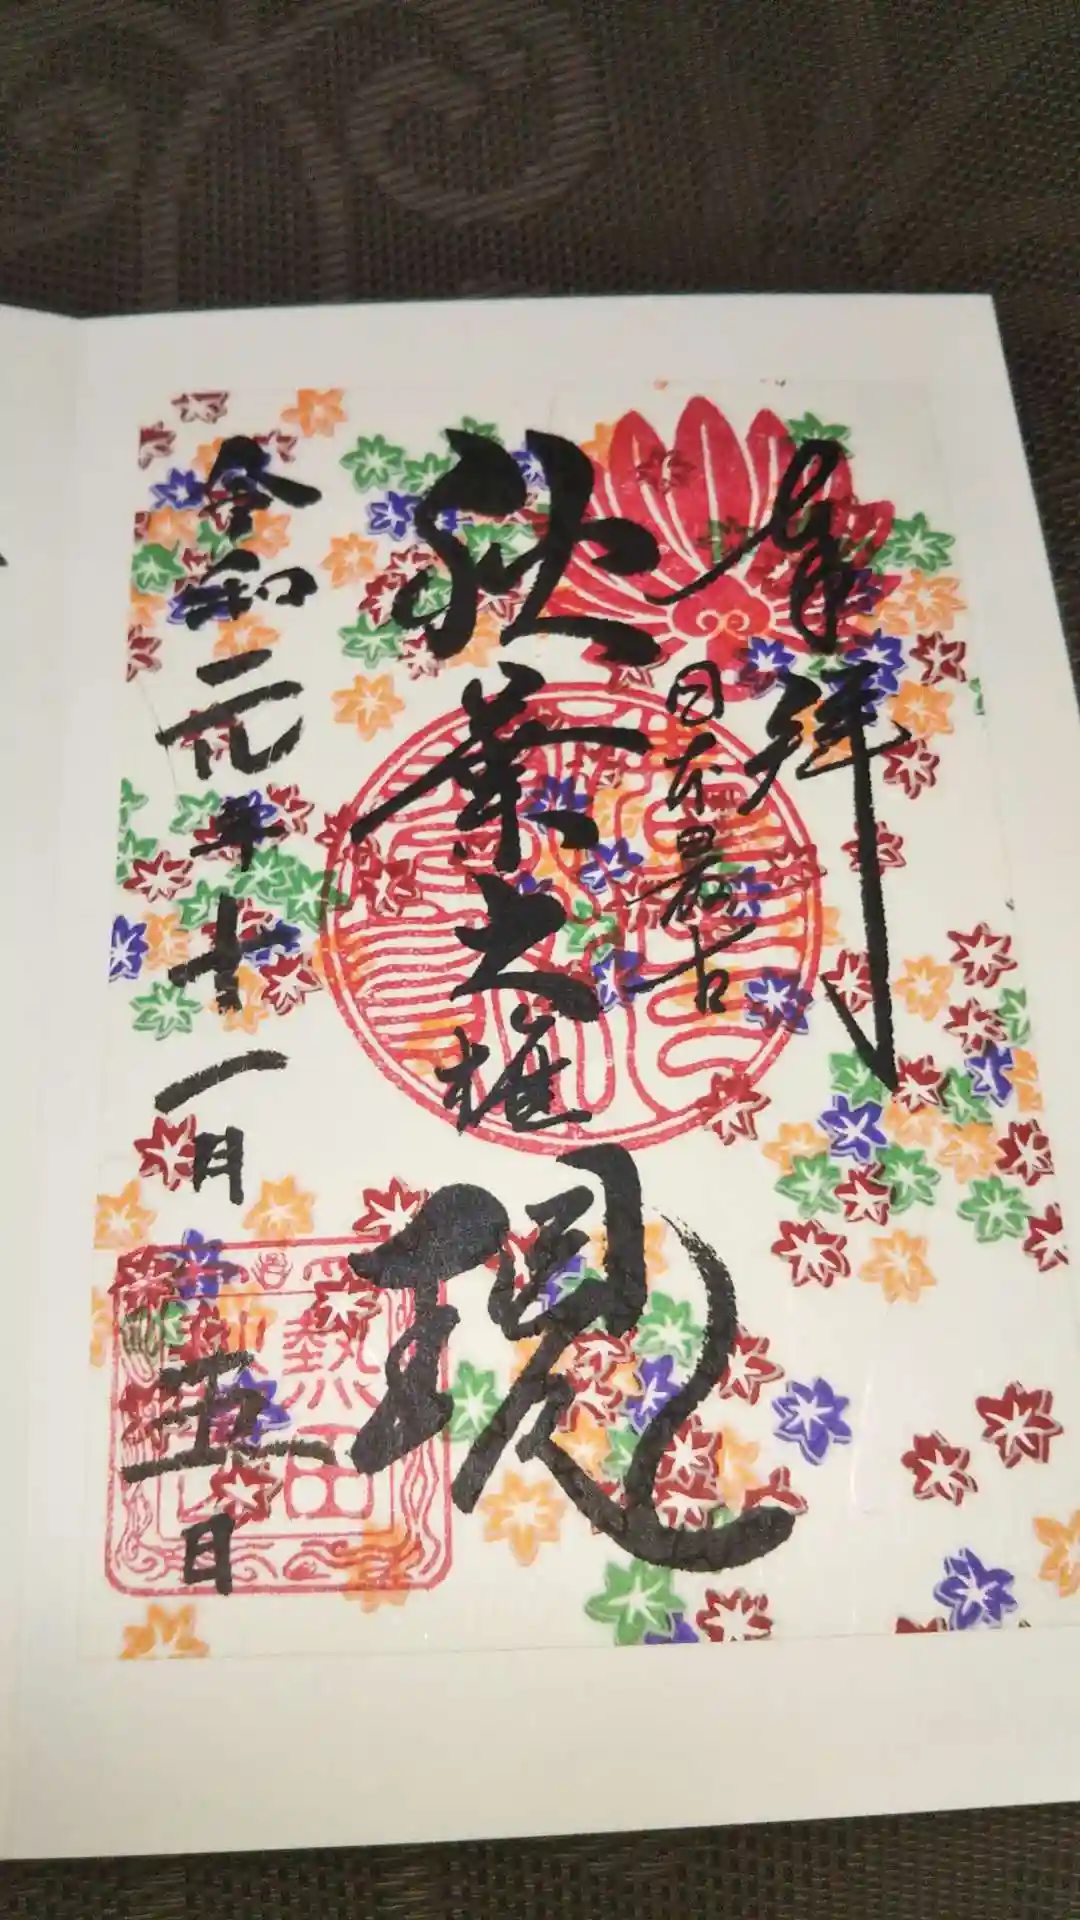 奉拝
日本最古
秋葉大権現
令和元年十一月五日
熱田